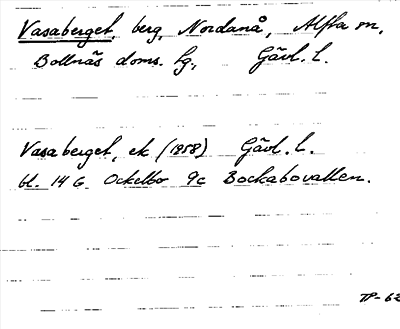 Vasaberget, berg, Nordanå, Alfta sn,
Bollnäs doms. sg., Gävl. l.
Vasaberget, ek (1958) Gävl. l.
bl. 14 G Ockelbo 9c Bockabovallen.
TP-62